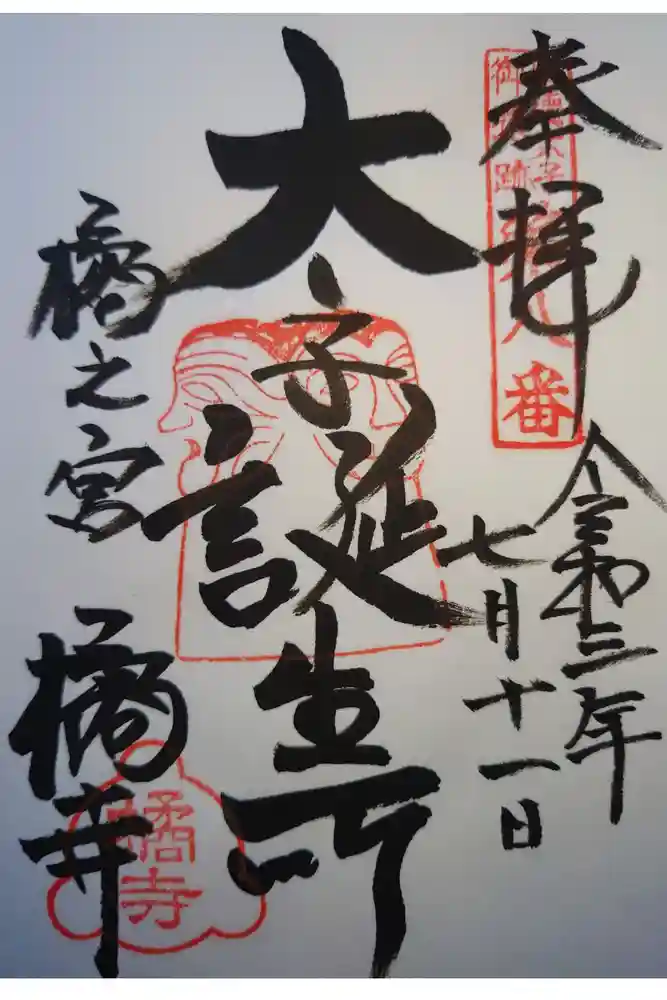 奉拝
令和三年
七月十一日
大子誕生所
橘之宮
橘寺
御 跡 第八番
橘寺